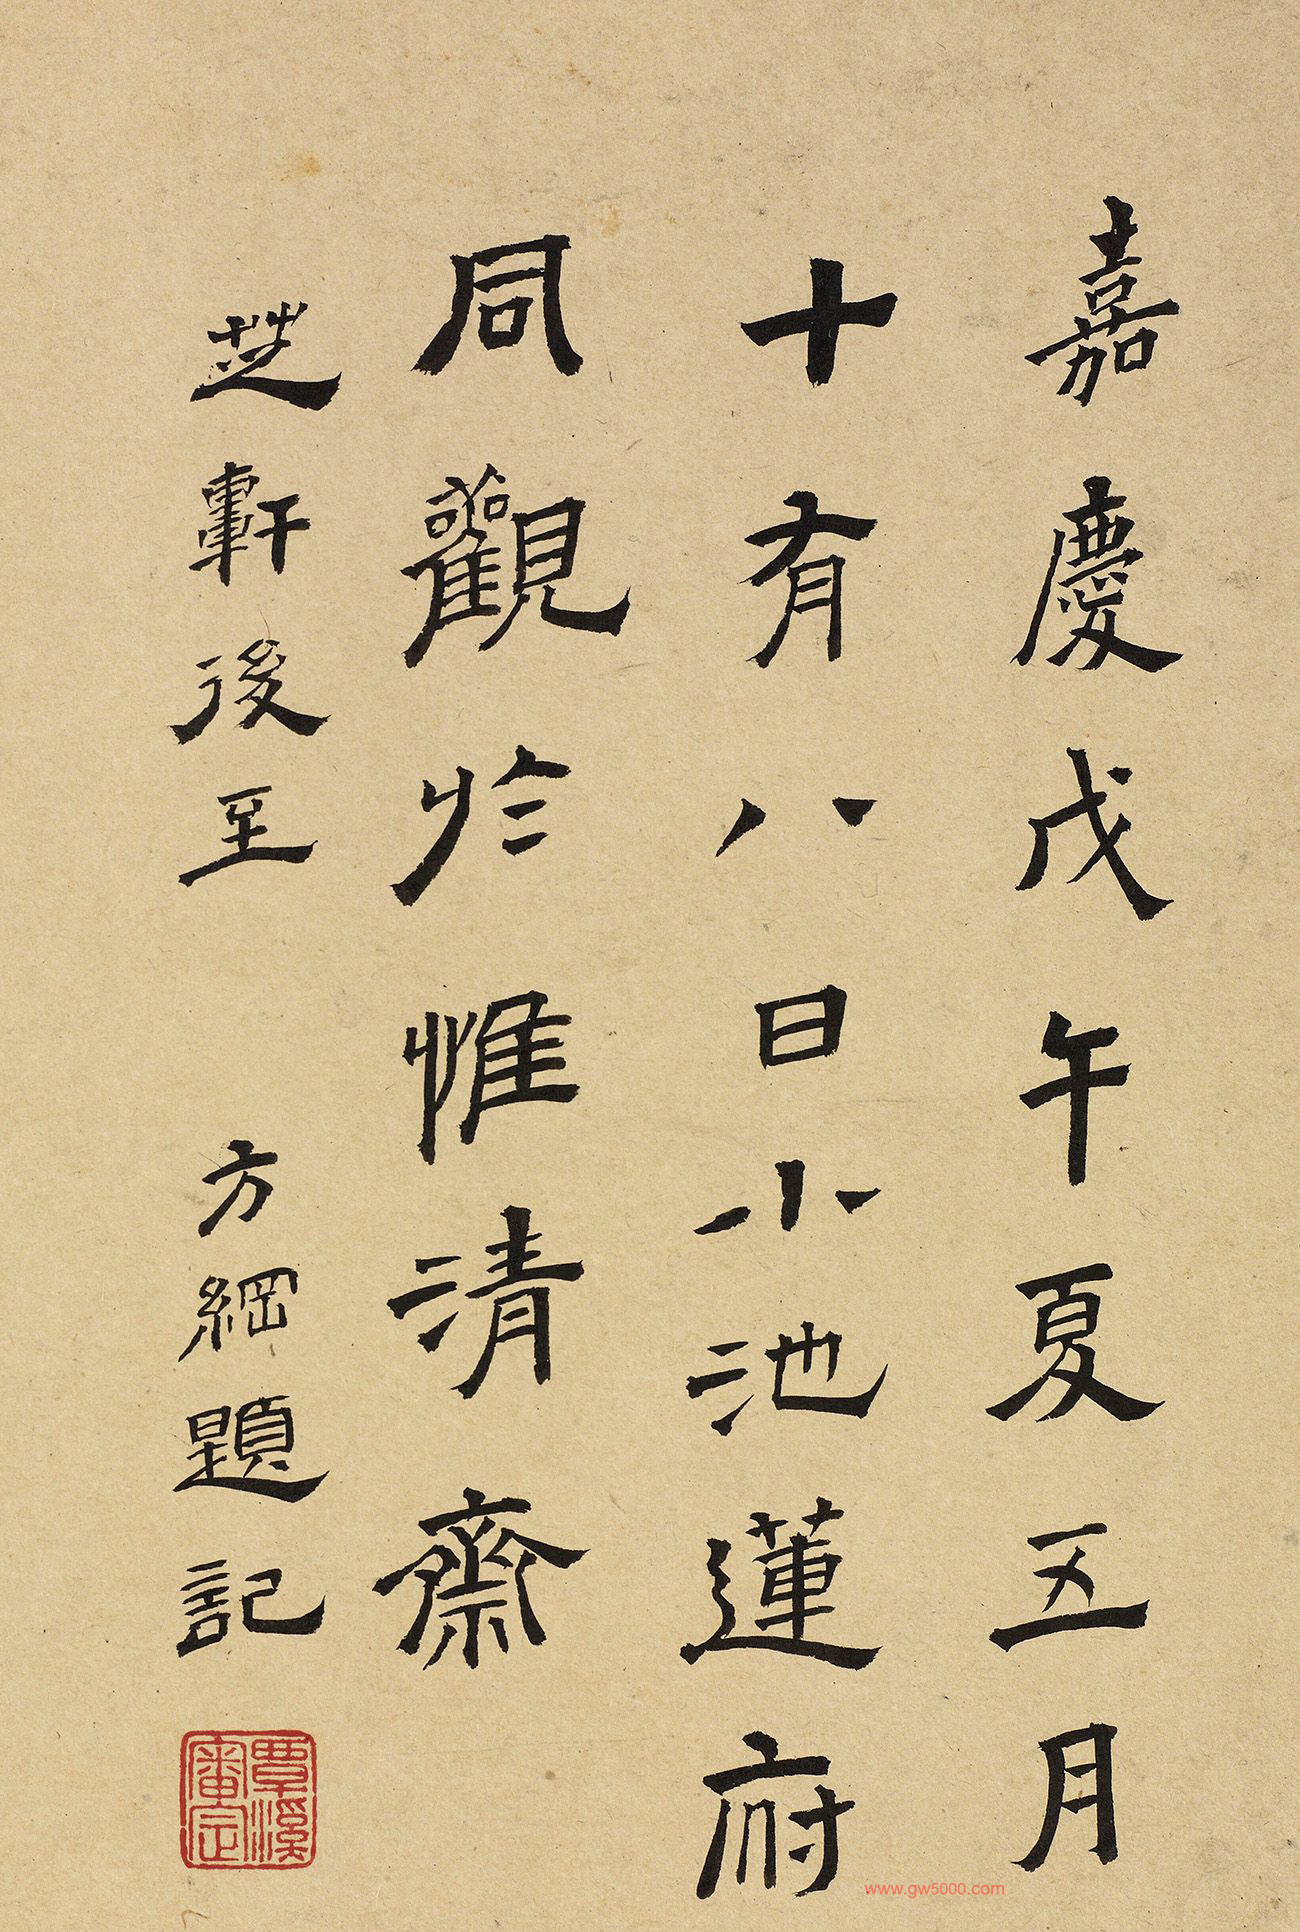 嘉慶戊午夏五月
十有八日小池蓮府
同觀於惟清齋
芝軒後至 方綱題記
覃溪
審定
www.gw5000.com